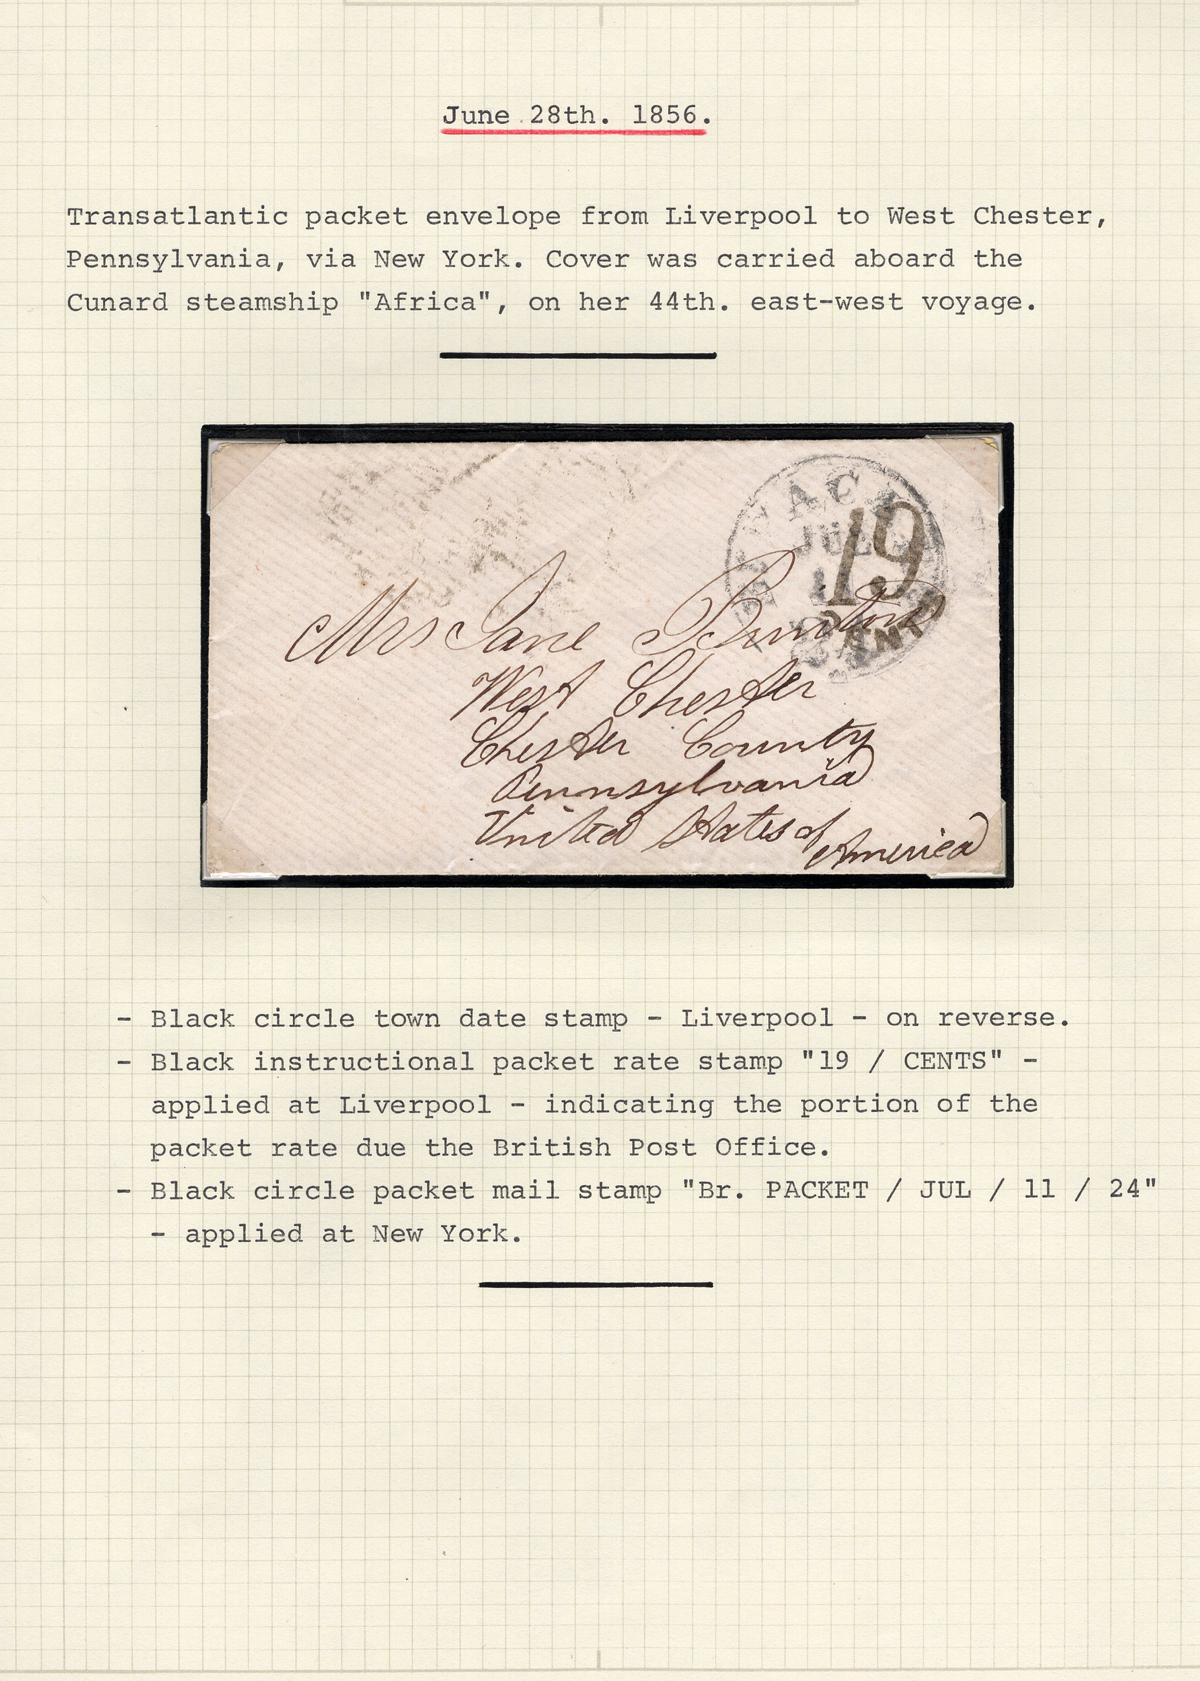 June 28th. 1856.
Transatlantic packet envelope from Liverpool to West Chester,
Pennsylvania, via New York. Cover was carried aboard the
Cunard steamship "Africa", on her 44th. east-west voyage.
PACK
JUL
19
CENTS
Mrs Jane
West Chester
Chester County
Pennsylvania
United States of
America
- Black circle town date stamp - Liverpool - on reverse.
- Black instructional packet rate stamp "19 / CENTS" -
applied at Liverpool - indicating the portion of the
packet rate due the British Post Office.
- Black circle packet mail stamp "Br. PACKET / JUL / 11 / 24"
- applied at New York.